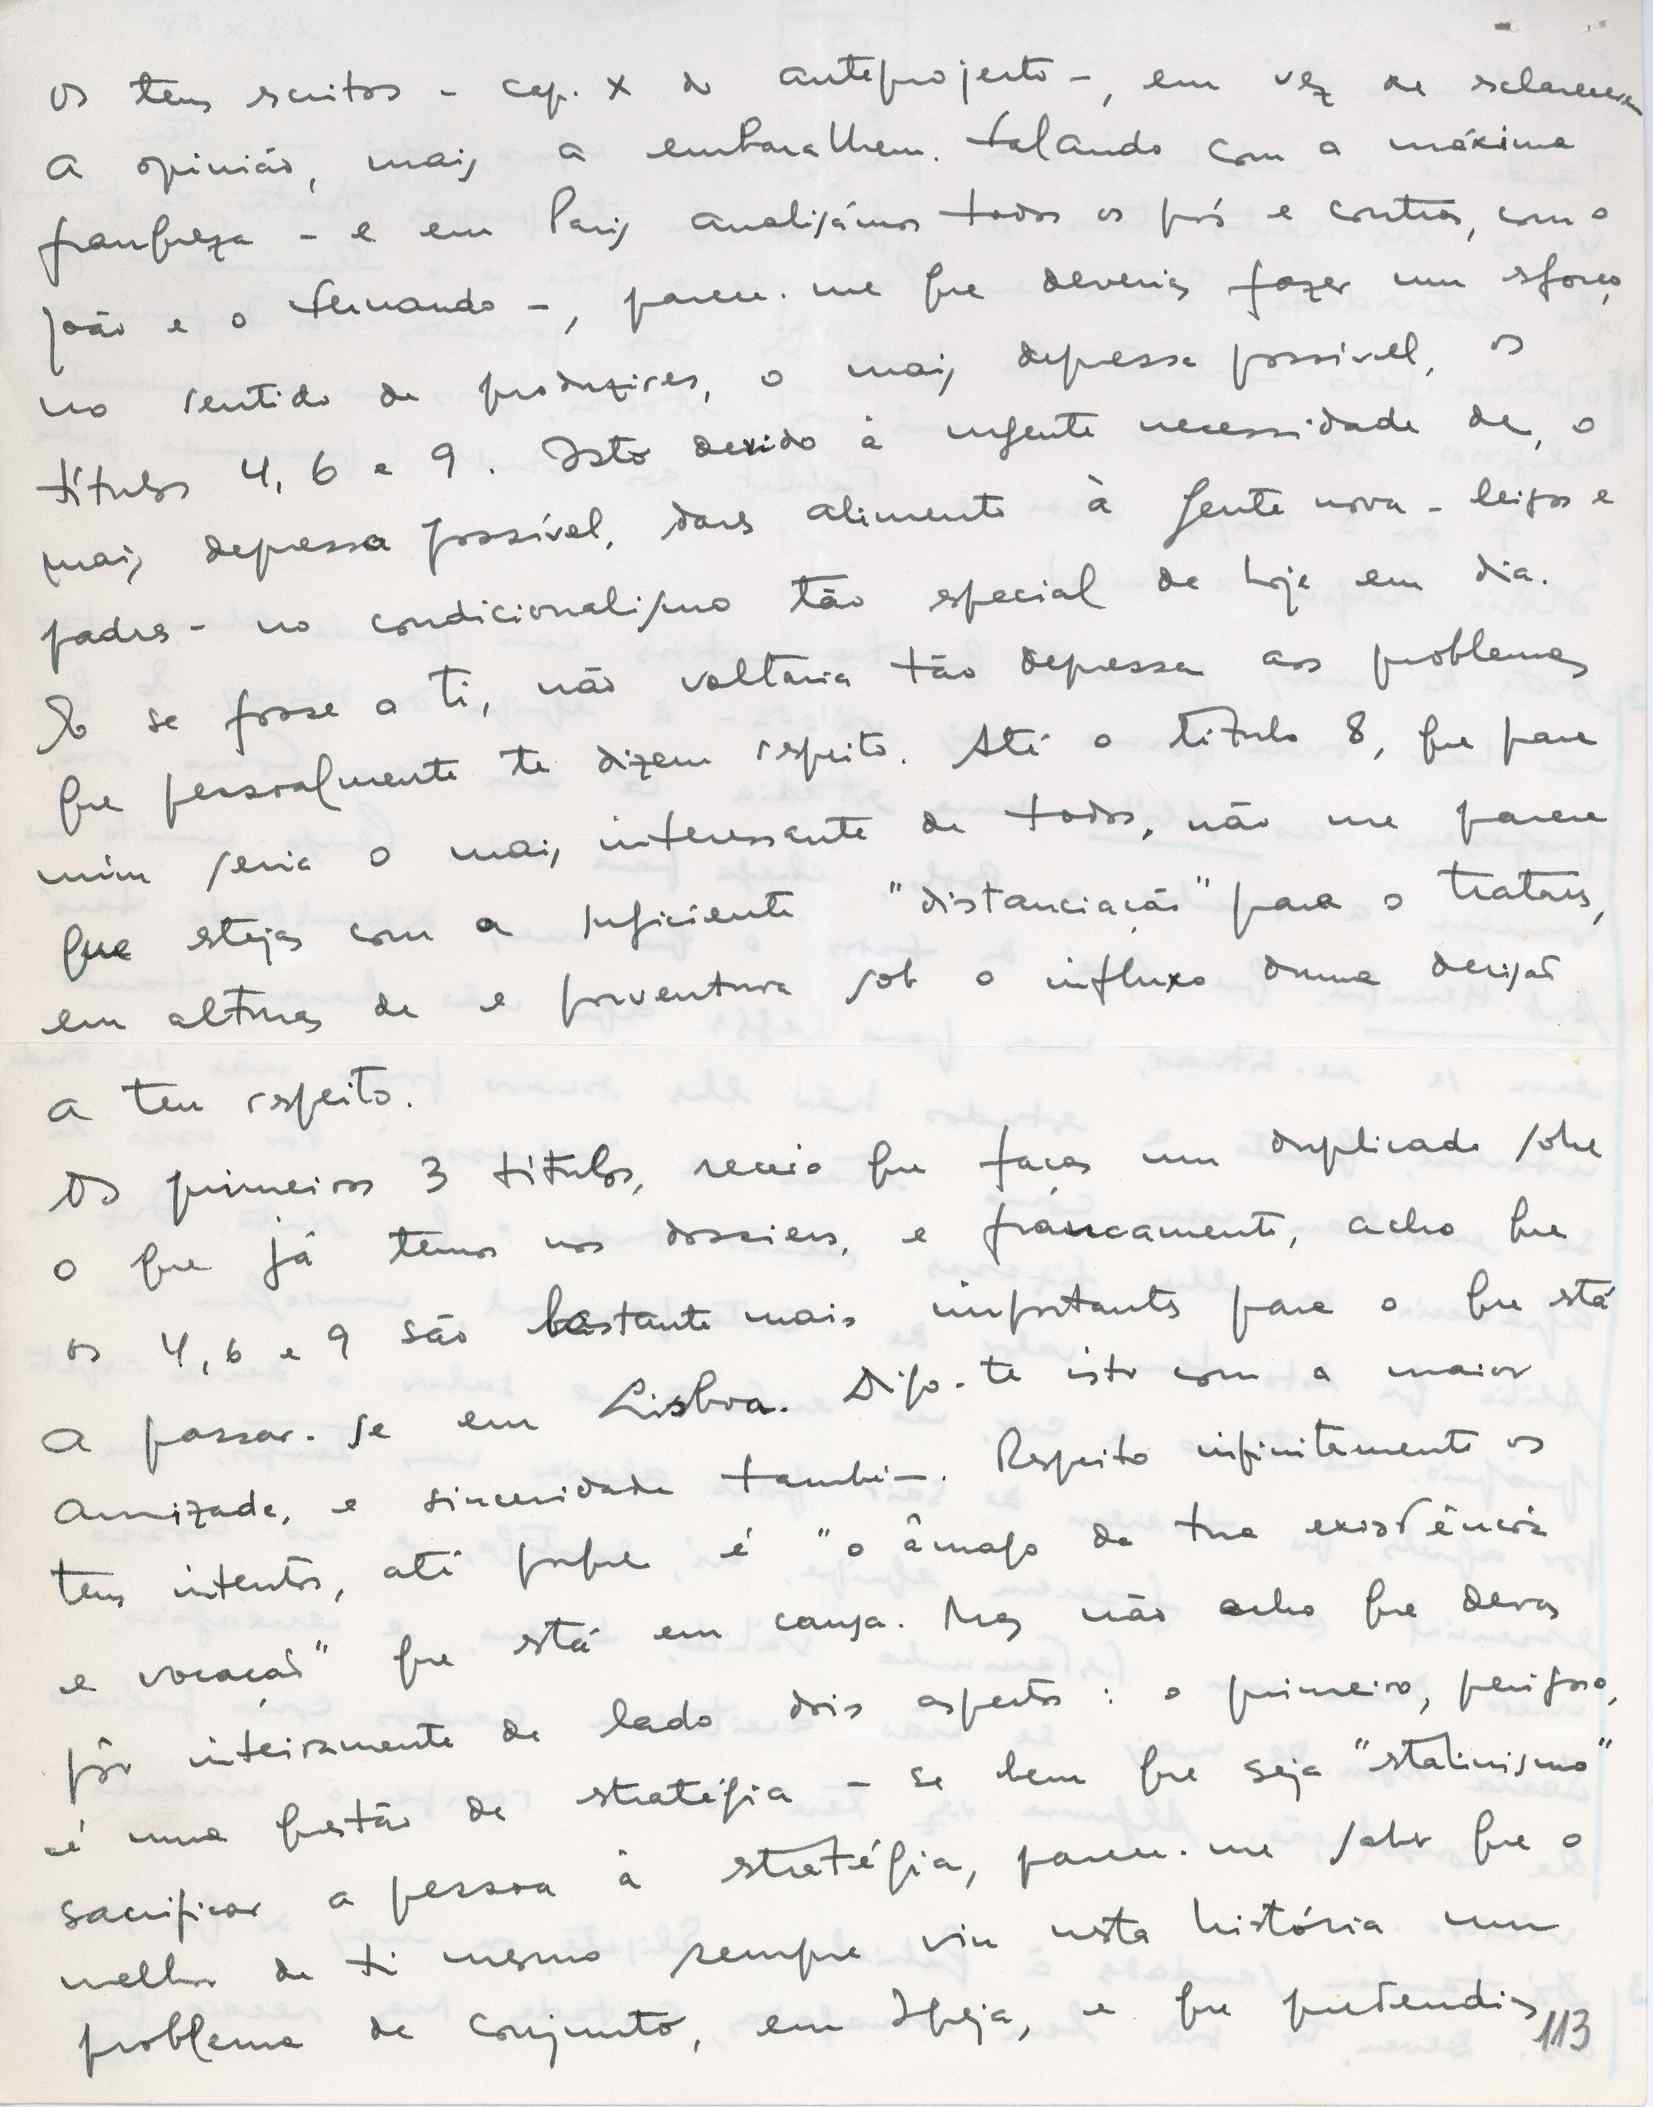 os teus escritos - cap. X do anteprojecto -, em vez de esclarecerem
a opinião, mais a embaralhem. Falando com a máxima
franqueza - e em Paris analisámos todos os prós e contras, com o
João e o Fernando -, parece-me que deverias fazer um esforço
no sentido de produzires, o mais depressa possível, os
títulos 4, 6 e 9. Isto devido à urgente necessidade de, o
mais depressa possível, dares alimento à gente nova - leigos e
padres - no condicionalismo tão especial de hoje em dia.
Eu se fosse a ti, não voltaria tão depressa aos problemas
que pessoalmente te dizem respeito. Até o título 8, que para
mim seria o mais interessante de todos, não me parece
que estejas com a suficiente "distanciação" para o tratares,
em alturas de e porventura sob o influxo duma decisão
a teu respeito.
Os primeiros 3 títulos, receio que faças um duplicado sobre
o que já temos nos dossiers, e francamente, acho que
os 4, 6 e 9 são bastante mais importantes para o que está
a passar-se em Lisboa. Digo-te isto com a maior
amizade, e sinceridade também. Respeito infinitamente os
teus intentos, até porque é "o âmago da tua existência
e vocação" que está em causa. Mas não acho que devas
pôr inteiramente de lado dois aspectos: o primeiro, perigoso,
é uma questão de estratégia - se bem que seja "stalinismo"
sacrificar a pessoa à estratégia, parece-me saber que o
melhor de ti mesmo sempre viu nesta história um
problema de conjunto, em Igreja, e que pretendias
113